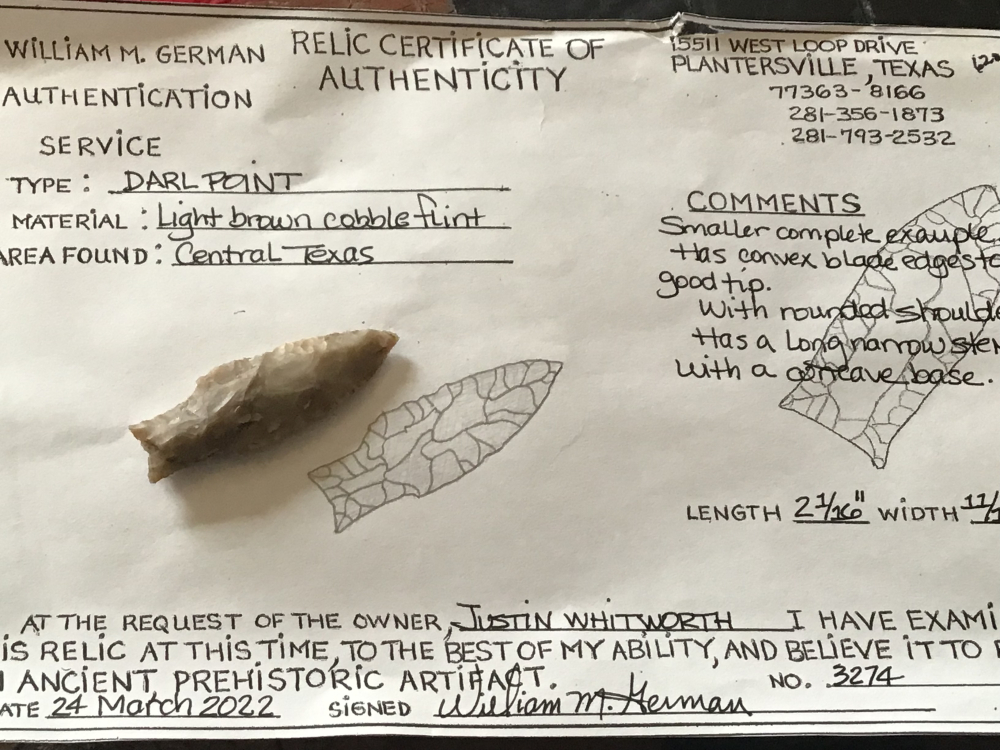 WILLIAM M. GERMAN
AUTHENTICATION
SERVICE
RELIC CERTIFICATE OF
AUTHENTICITY
15511 WEST LOOP DRIVE
PLANTERSVILLE, TEXAS
77363-8166
281-356-1873
281-793-2532
TYPE: DARL POINT
MATERIAL: Light brown cobble flint
AREA FOUND: Central Texas
COMMENTS
Smaller complete example.
Has convex blade edges to
good tip.
With rounded
Has a Long narrow
With a concave base.
LENGTH 2 1/16" WIDTH
AT THE REQUEST OF THE OWNER, JUSTIN WHITWORTH I HAVE
IS RELIC AT THIS TIME, TO THE BEST OF MY ABILITY, AND BELIEVE IT TO
ANCIENT, PREHISTORIC ARTIFACT.
NO. 3274
ATE 24 March 2022 SIGNED William M. German